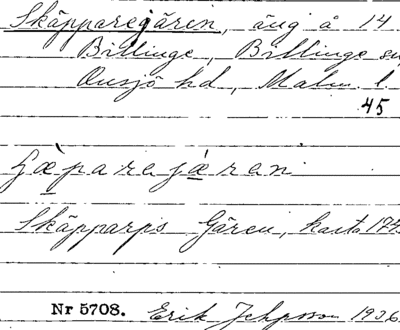 Skäpparegären, äng å 14
Billinge, Billinge sn
Onsjö hd, Malm. l.
45
Skäpparps Gären, karta 174
Nr 5708. Erik Jeppson 1936